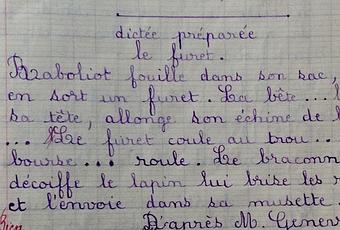 dictée préparée
le furet.
Raboliot fouille dans son sac,
en sort un furet. La bête ...
sa tête, allonge son échine de
... Le furet coule au trou ..
bourse ... roule. Le braconn
décoiffe le lapin lui brise les
et l'envoie dans sa musette.
Bien
D'après M. Genev